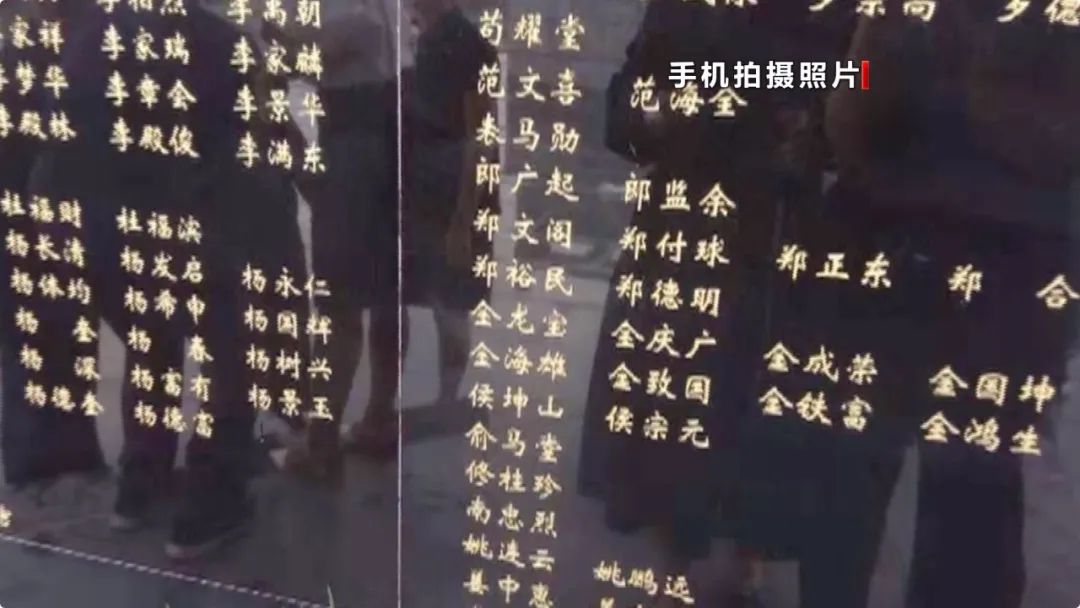 手机拍摄照片
李家瑞 李家麟
李章会 李景华
李殿林 李殿俊 李满东
杜福财 杜福滨
杨长清 杨发启
杨体均 杨希申 杨永仁
杨奎 杨春 杨国辉
杨深 杨富有 杨树兴
杨德奎 杨德富 杨景玉
苟耀堂
范文喜 范海金
袁马勋
郎广起 郎监余
郑文阁 郑付球 郑正东 郑合
郑裕民 郑德明
金龙宝 金庆广 金成荣 金国坤
金海雄 金致国 金铁富 金鸿生
侯坤山 侯宗元
俞马堂
修桂珍
南忠烈
姚连云 姚鹏远
姜中惠